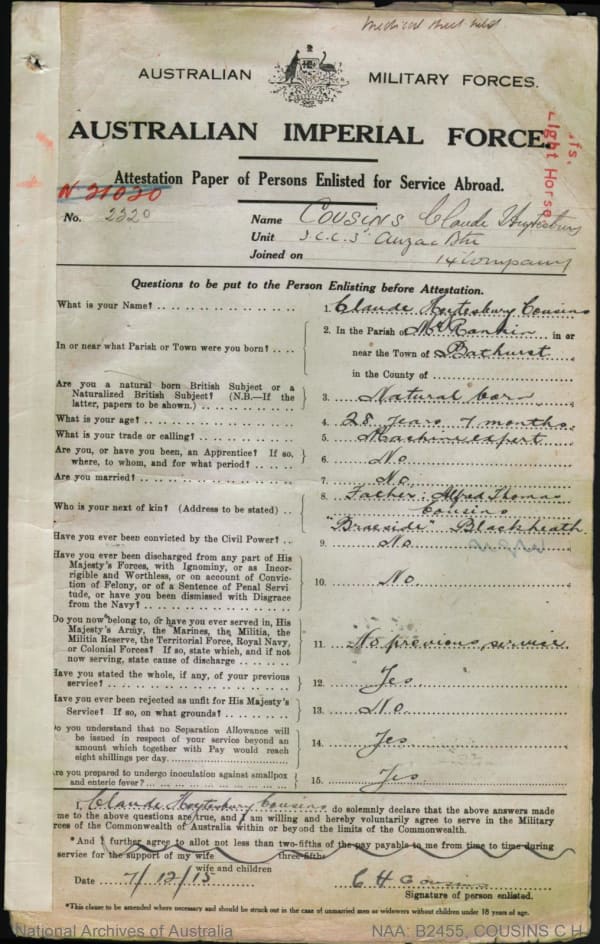 Medical sheet held
AUSTRALIAN MILITARY FORCES.
AUSTRALIAN IMPERIAL FORCE.
Light Horse
Attestation Paper of Persons Enlisted for Service Abroad.
N 21020
No. 2320 Name COUSINS Claude Heytesbury
Unit Anzac Btn
Joined on 14 Company
Questions to be put to the Person Enlisting before Attestation.
What is your Name? 1. Claude Heytesbury Cousins
In or near what Parish or Town were you born? 2. In the Parish of Mt Rankin in or
near the Town of Bathurst
in the County of
Are you a natural born British Subject or a
Naturalized British Subject? (N.B.—If the
latter, papers to be shown.) 3. Natural born
What is your age? 4. 28 years 7 months
What is your trade or calling? 5. Machine expert
Are you, or have you been, an Apprentice? If so,
where, to whom, and for what period? 6. No
Are you married? 7. No
Who is your next of kin? (Address to be stated) 8. Father: Alfred Thomas
Cousins
"Braeside" Blackheath
Have you ever been convicted by the Civil Power? 9. No
Have you ever been discharged from any part of His
Majesty's Forces, with Ignominy, or as Incor-
rigible and Worthless, or on account of Convic-
tion of Felony, or of a Sentence of Penal Servi-
tude, or have you been dismissed with Disgrace
from the Navy? 10. No
Do you now* belong to, or have you ever served in, His
Majesty's Army, the Marines, the Militia, the
Militia Reserve, the Territorial Force, Royal Navy,
or Colonial Forces? If so, state which, and if not
now serving, state cause of discharge 11. No previous service
Have you stated the whole, if any, of your previous
service? 12. Yes
Have you ever been rejected as unfit for His Majesty's
Service? If so, on what grounds? 13. No
Do you understand that no Separation Allowance will
be issued in respect of your service beyond an
amount which together with Pay would reach
eight shillings per day 14. Yes
Are you prepared to undergo inoculation against smallpox
and enteric fever? 15. Yes
I, Claude Heytesbury Cousins do solemnly declare that the above answers made
me to the above questions are true, and I am willing and hereby voluntarily agree to serve in the Military
rces of the Commonwealth of Australia within or beyond the limits of the Commonwealth.
*And I further agree to allot not less than two-fifths of the pay payable to me from time to time during
three-fifths
service for the support of my wife
wife and children
Date 7/12/15 C H Cousins
Signature of person enlisted.
*This clause to be amended where necessary and should be struck out in the case of unmarried men or widowers without children under 18 years of age.
National Archives of Australia NAA: B2455, COUSINS C H